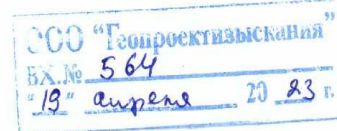 ООО "Геопроектизыскания"
ВХ.№ 564
"19" апреля 20 23 г.